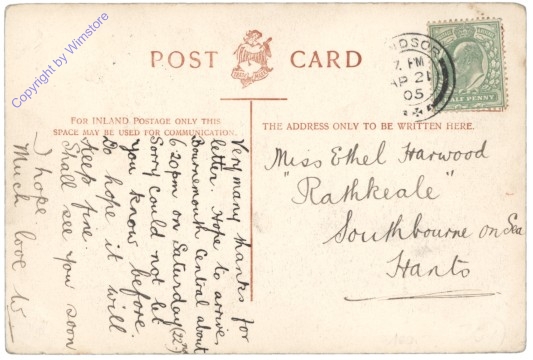 Copyright by Wimstore
POST CARD
WINDSOR
7. PM
AP 21
05
HALF PENNY
FOR INLAND POSTAGE ONLY THIS
SPACE MAY BE USED FOR COMMUNICATION.
THE ADDRESS ONLY TO BE WRITTEN HERE.
Very many thanks for
letter. Hope to arrive
Bournemouth Central about
6.20pm on Saturday (22nd)
Sorry could not let
you know before.
Do hope it will
keep fine.
Shall see you soon
I hope.
Much love to
Miss Ethel Harwood
"Rathkeale"
Southbourne on Sea
Hants